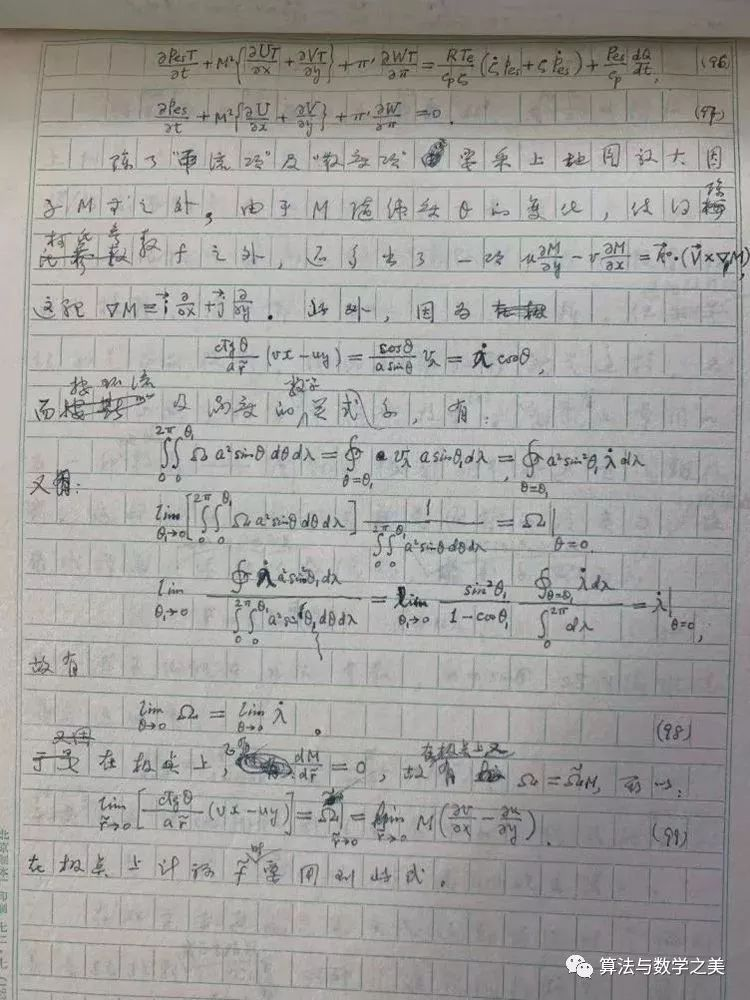 ∂PesT/∂t + M²{∂UT/∂x + ∂VT/∂y} + π' ∂WT/∂π = RTe/(cpζ) (ζ̇Pes + ζṖes) + Pes/cp dQ/dt, (96)
∂Pes/∂t + M²{∂U/∂x + ∂V/∂y} + π' ∂W/∂π = 0. (97)
除了"平流项"及"散度项" 要乘上地图放大因
子M 之外,由于M随纬度θ的变化,使得除
柯氏参数f之外,还多出了一项 u∂M/∂y - v∂M/∂x = k⃗·(V⃗×∇M),
这里 ∇M = i⃗ ∂/∂x + j⃗ ∂/∂y. 此外,因为
ctgθ/(a r̃) (vx-uy) = cosθ/(a sinθ) v_λ = λ̇ cosθ,
而按环流及涡度的数学关系式 ,有:
∫₀^{2π}∫₀^{θ₁} Ω a² sinθ dθdλ = ∮_{θ=θ₁} v_λ a sinθ₁ dλ = ∮_{θ=θ₁} a² sin²θ₁ λ̇ dλ
又有:
lim_{θ₁→0} [∫₀^{2π}∫₀^{θ₁} Ω a² sinθ dθdλ] 1/(∫₀^{2π}∫₀^{θ₁} a² sinθ dθdλ) = Ω|_{θ=0}
lim_{θ₁→0} (∮ λ̇ a² sin²θ₁ dλ)/(∫₀^{2π}∫₀^{θ₁} a² sinθ dθdλ) = lim_{θ₁→0} sin²θ₁/(1-cosθ₁) (∮_{θ=θ₁} λ̇ dλ)/(∫₀^{2π} dλ) = λ̇|_{θ=0},
故有
lim_{θ→0} Ω = lim_{θ→0} λ̇ 。 (98)
在极点上, dM/dr̃ = 0, 在极点上又有 Ω = Ω̃M,
lim_{r̃→0} [ctgθ/(a r̃) (vx-uy)] = Ω̃_{r̃→0} = lim_{r̃→0} M(∂v/∂x - ∂u/∂y). (99)
在极点上计算 f̃ 时要用到此式.
算法与数学之美